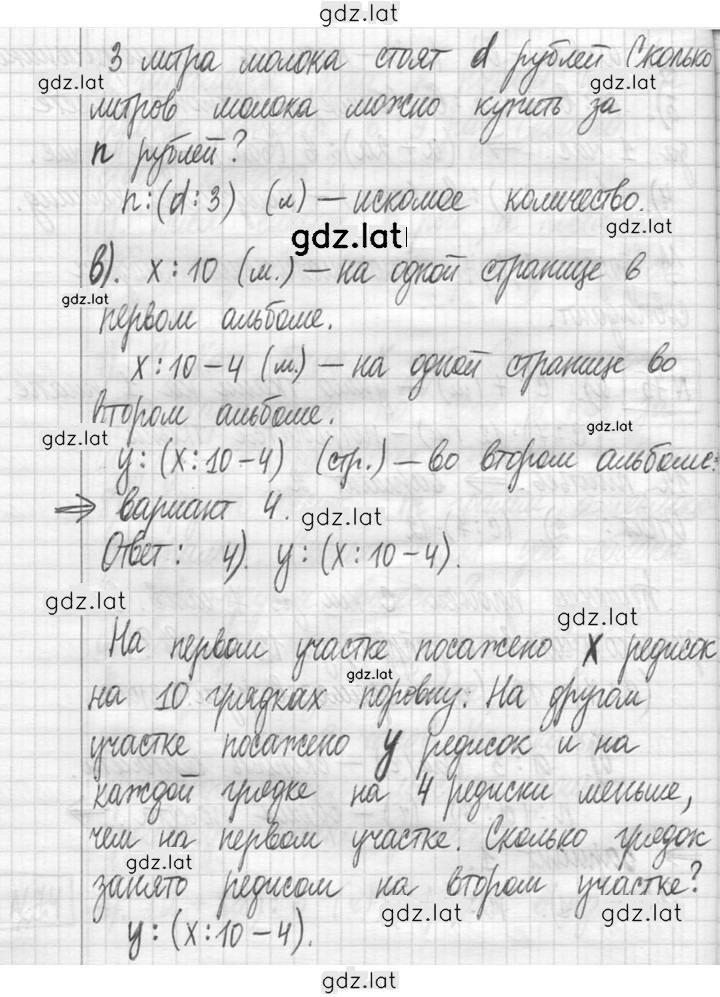 gdz.lat
3 литра молока стоят d рублей Сколько
gdz.lat gdz.lat
литров молока можно купить за
n рублей?
n:(d:3) (л) – искомое количество.
gdz.lat
gdz.lat
в). x:10 (м.) – на одной странице в
gdz.lat
первом альбоме.
x:10-4 (м.) – на одной странице во
втором альбоме.
gdz.lat gdz.lat
y:(x:10-4) (стр.) – во втором альбоме:
⇒ вариант 4.
gdz.lat
Ответ: 4). y:(x:10-4).
gdz.lat
gdz.lat
На первом участке посажено x редисок
gdz.lat
на 10 грядках поровну. На другом
участке посажено y редисок и на
каждой грядке на 4 редиски меньше,
чем на первом участке. Сколько грядок
gdz.lat
занято редисом на втором участке?
gdz.lat gdz.lat
y:(x:10-4).
gdz.lat